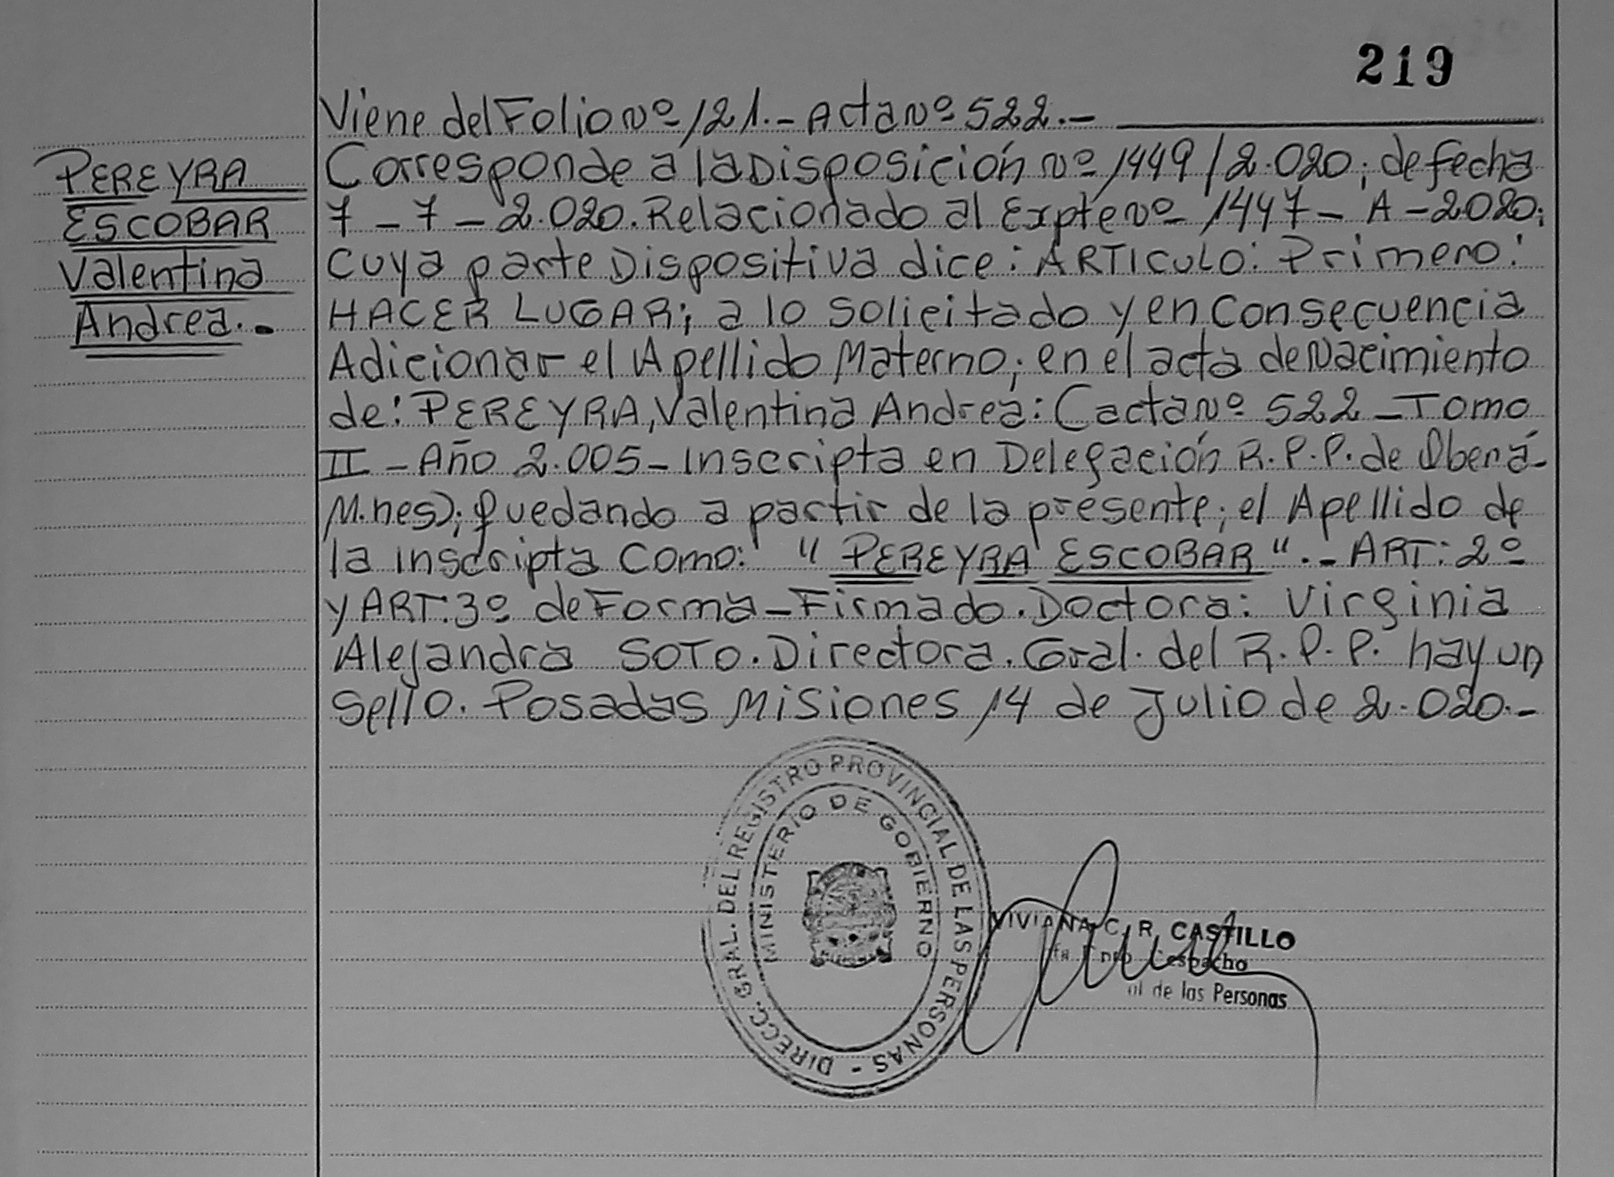 219
Viene del Folio Nº 121.- Acta Nº 522.-
PEREYRA
ESCOBAR
Valentina
Andrea.-
Corresponde a la Disposición Nº 1449/2.020; de fecha
7-7-2.020. Relacionado al Expte Nº 1447-A-2020;
Cuya parte Dispositiva dice: ARTICULO: Primero:
HACER LUGAR; a lo Solicitado y en Consecuencia
Adicionar el Apellido Materno; en el acta de Nacimiento
de: PEREYRA, Valentina Andrea: (acta Nº 522 - Tomo
II - Año 2.005 - Inscripta en Delegación R.P.P. de Oberá-
M.nes); quedando a partir de la presente; el Apellido de
la inscripta Como: "PEREYRA ESCOBAR".- ART: 2º
y ART: 3º de Forma - Firmado. Doctora: Virginia
Alejandra SOTO. Directora. Gral. del R.P.P. hay un
Sello. Posadas Misiones 14 de Julio de 2.020.-
DIRECC. GRAL. DEL REGISTRO PROVINCIAL DE LAS PERSONAS -
MINISTERIO DE GOBIERNO
VIVIANA C. R. CASTILLO
Despacho
de las Personas